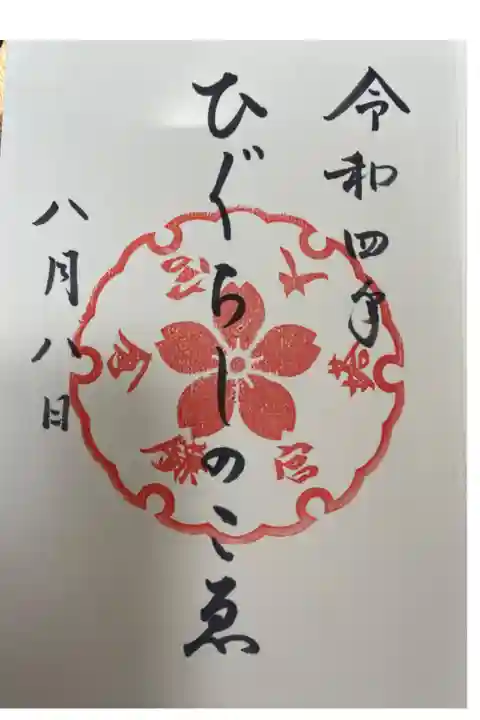 令和四年
ひぐらしのこゑ
八月八日